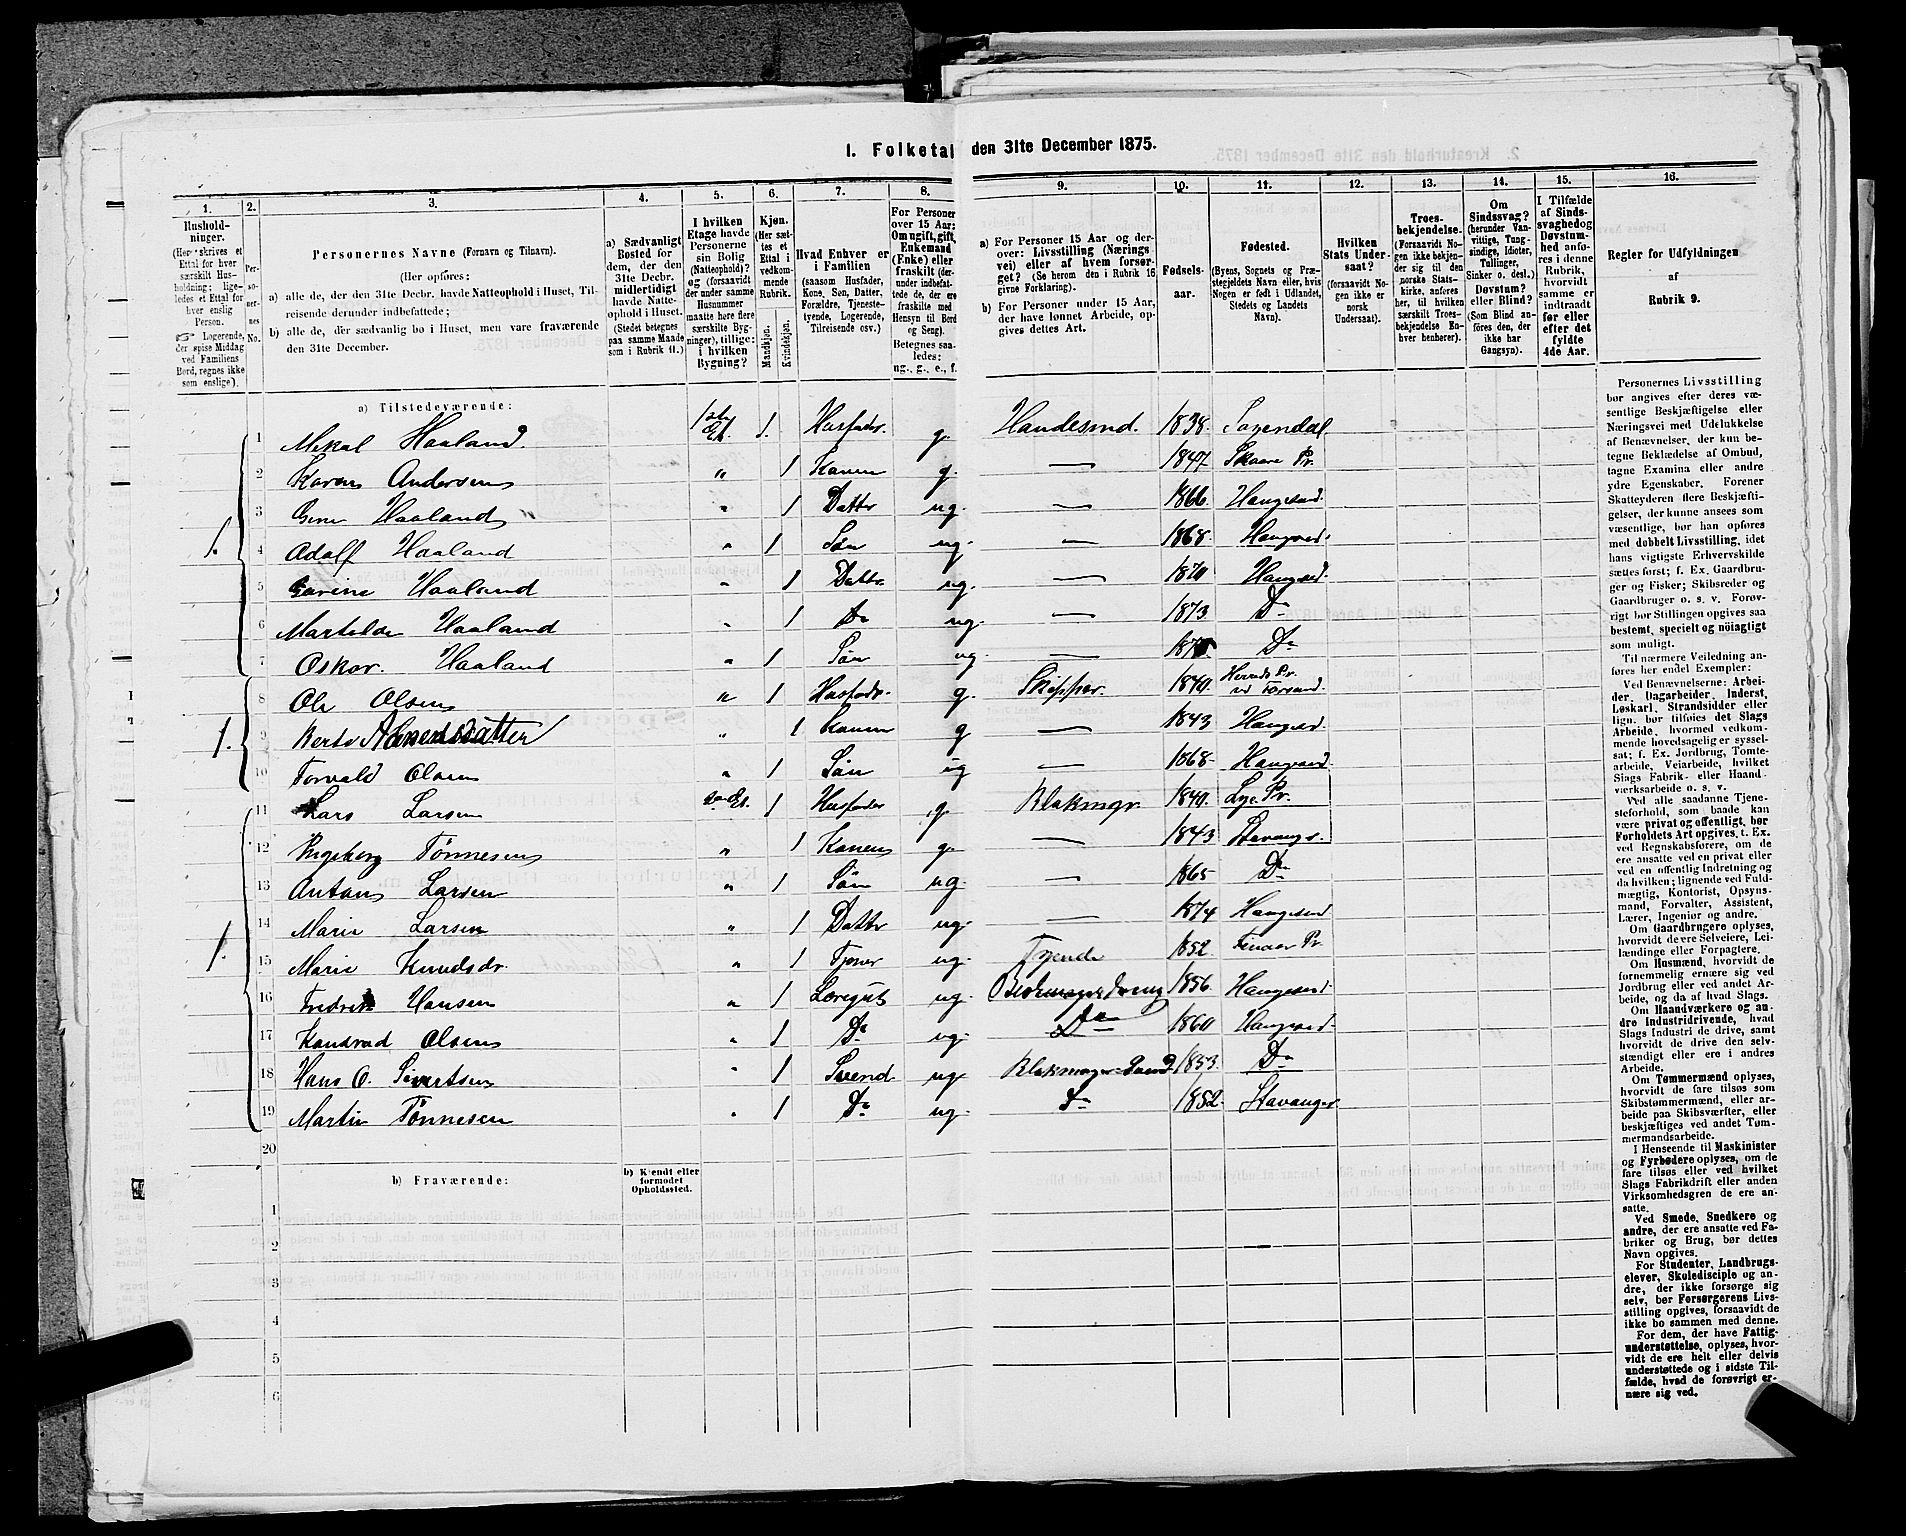 1. Folketal den 31te December 1875.
1. 2. 3. 4. 5. 6. 7. 8. 9. 10. 11. 12. 13. 14. 15. 16.
Husholdninger. (Her skrives et Ettal for hver særskilt Husholdning; ligeledes et Ettal for hver enslig Person. Logerende, der spise Middag ved Familiens Bord, regnes ikke som enslige).
Personernes No.
Personernes Navne (Fornavn og Tilnavn).
(Her opføres:
a) alle de, der den 31te Decbr. havde Natteophold i Huset, Tilreisende derunder indbefattede;
b) alle de, der sædvanlig bo i Huset, men vare fraværende den 31te December.
a) Sædvanligt Bosted for dem, der den 31te Decbr. midlertidigt havde Natteophold i Huset. (Stedet betegnes paa samme Maade som i Rubrik 11.)
I hvilken Etage havde Personerne sin Bolig (Natteophold)? og (forsaavidt der under samme Husnummer maatte høre flere særskilte Bygninger), tillige: i hvilken Bygning?
Kjøn. (Her sættes et Ettal i vedkommende Rubrik.
Mandkjøn. Kvindekjøn.
Hvad Enhver er i Familien (saasom Husfader, Kone, Søn, Datter, Forældre, Tjenestetyende, Logerende, Tilreisende osv.)
For Personer over 15 Aar: Om ugift, gift, Enkemand (Enke) eller fraskilt (derunder indbefattede de, der ere fraskilte med Hensyn til Bord og Seng). Betegnes saaledes: ug., g., e., f.
a) For Personer 15 Aar og derover: Livsstilling (Næringsvei) eller af hvem forsørget? (Se herom den i Rubrik 16 givne Forklaring).
b) For Personer under 15 Aar, der have lønnet Arbeide, opgives dettes Art.
Fødselsaar.
Fødested. (Byens, Sognets og Præstegjeldets Navn eller, hvis Nogen er født i Udlandet, Stedets og Landets Navn).
Hvilken Stats Undersaat? (forsaavidt Nogen ikke er norsk Undersaat).
Troesbekjendelse. (Forsaavidt Nogen ikke bekjender sig til den norske Statskirke, anføres her, til hvilken særskilt Troesbekjendelse Enhver henhører).
Om Sindssvag? (herunder Vanvittige, Tungsindige, Idioter, Tullinger, Sinker o. desl.) Døvstum? eller Blind? (Som Blind anføres den, der ikke har Gangsyn).
I Tilfælde af Sindssvaghed og Døvstumhed anføres i denne Rubrik, hvorvidt samme er indtraadt før eller efter det fyldte 4de Aar.
Regler for Udfyldningen af Rubrik 9.
a) Tilstedeværende:
1. 1 Mekal Haaland 1ste Et. 1. Husfader g. Handelsmd. 1838 Sogendal
2 Karen Andersen " 1 Konen g. — 1847 Skaare Pr.
3 Gine Haaland " 1 Dattr ug. — 1866 Haugesund.
4 Adolf Haaland " 1 Søn ug. — 1868 Haugesd.
5 Gurine Haaland " 1 Dattr ug. — 1870 Haugesd.
6 Martilde Haaland " 1 Do ug. — 1873. Do
7 Oskar. Haaland " 1 Søn ug. — 1875. Do
1. 8 Ole Olsen " 1 Husfadr. g. Skipper 1840.
9 Berte " 1 Konen g — 1843 Haugesd
10 Torvald Olsen " 1 Søn ug — 1868 Haugesd.
1. 11 Lars Larsen 2den Et. 1 Husfader g. Blokmgr. 1840. Lye Pr.
12 Ingeborg Tønnesen " 1 Konen g. — 1843 Stavangr.
13 Anton Larsen " 1 Søn ug. — 1865 Do
14 Marie Larsen " 1 Dattr ug. — 1874 Haugesd
15 Marie Knudsdr. " 1 Tjener ug. Tyende 1852. Pr
16 Fredrik Hansen " 1 Læregut ug. 1856. Haugesd.
17 Kondrad Olsen " 1 Do ug. Do 1860 Haugesd.
18 Hans O. Sivertsen " 1 Svend ug. Blokmager Svend 1853. Do
19 Martin Tønnesen " 1 Do ug. Do 1852. Stavanger
20
b) Fraværende:
b) Kjendt eller formodet Opholdssted.
1
2
3
4
5
6
Personernes Livsstilling
bør angives efter deres væsentlige Beskjæftigelse eller
Næringsvei med Udelukkelse
af Benævnelser, der kun betegne Beklædelse af Ombud,
tagne Examina eller andre
ydre Egenskaber. Forener
Skatteyderen flere Beskjæftigelser, der kunne ansees som
væsentlige, bør han opføres
med dobbelt Livsstilling, idet
hans vigtigste Erhvervskilde
sættes først; f. Ex. Gaardbruger og Fisker; Skibsreder og
Gaardbruger o. s. v. Forøvrigt bør Stillingen opgives saa
bestemt, specielt og nöiagtigt
som muligt.
Til nærmere Veiledning anføres her endel Exempler:
Ved Benævnelserne: Arbeider, Dagarbeider, Inderst,
Løskarl, Strandsidder eller
lign. bør tilføies det Slags
Arbeide, hvormed vedkommende hovedsagelig er sysselsat; f. Ex. Jordbrug, Tomtearbeide, Veiarbeide, hvilket
Slags Fabrik- eller Haandværksarbeide o. s. v.
Ved alle saadanne Tjenesteforhold, som baade kan
være privat og offentligt, bør
Forholdets Art opgives, t. Ex.
ved Regnskabsførere, om de
ere ansatte ved en privat eller
ved en offentlig Indretning og
da hvilken; lignende ved Fuldmægtig, Kontorist, Opsynsmand, Forvalter, Assistent,
Lærer, Ingeniør og andre.
Om Gaardbrugere oplyses,
hvorvidt de ere Selveiere, Leilændinge eller Forpagtere.
Om Husmænd, hvorvidt de
fornemmelig ernære sig ved
Jordbrug eller ved andet Arbeide, og da af hvad Slags.
Om Haandværkere og andre Industridrivende, hvad
Slags Industri de drive, samt
hvorvidt de drive den selvstændigt eller ere i andres
Arbeide.
Om Tømmermænd oplyses,
hvorvidt de fare tilsøs som
Skibstømmermænd, eller arbeide paa Skibsværfter, eller
beskjæftiges ved andet Tømmermandsarbeide.
I Henseende til Maskinister
og Fyrbødere oplyses, om de
fare tilsøs eller ved hvilket
Slags Fabrikdrift eller anden
Virksomhedsgren de ere ansatte.
Ved Smede, Snedkere og
andre, der ere ansatte ved Fabriker og Brug, bør dettes
Navn opgives.
For Studenter, Landbrugselever, Skoledisciple og andre, der ikke forsørge sig
selv, bør Forsørgerens Livsstilling opgives, forsaavidt de
ikke bo sammen med denne.
For dem, der have Fattigunderstøttelse, oplyses, hvorvidt de ere helt eller delvis
understøttede og i sidste Tilfælde, hvad de forøvrigt ernære sig ved.